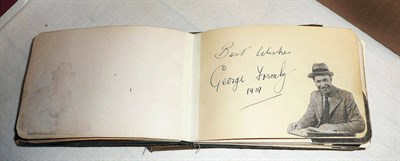 Best Wishes
George Formby
1939